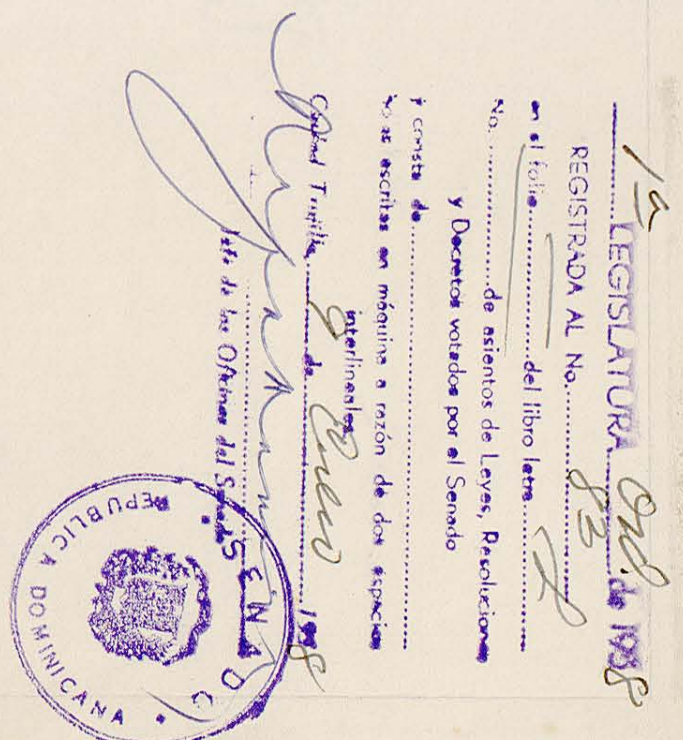 1ª LEGISLATURA Ord. de 1938
REGISTRADA AL No. 83
en el folio del libro letra
No. de asientos de Leyes, Resoluciones
y Decretos votados por el Senado
y consta de
escritas en máquina a razón de dos espacios
interlineales
Ciudad Trujillo 8 de Enero 1938
Jefe de las Oficinas del Senado
SENADO
REPUBLICA DOMINICANA